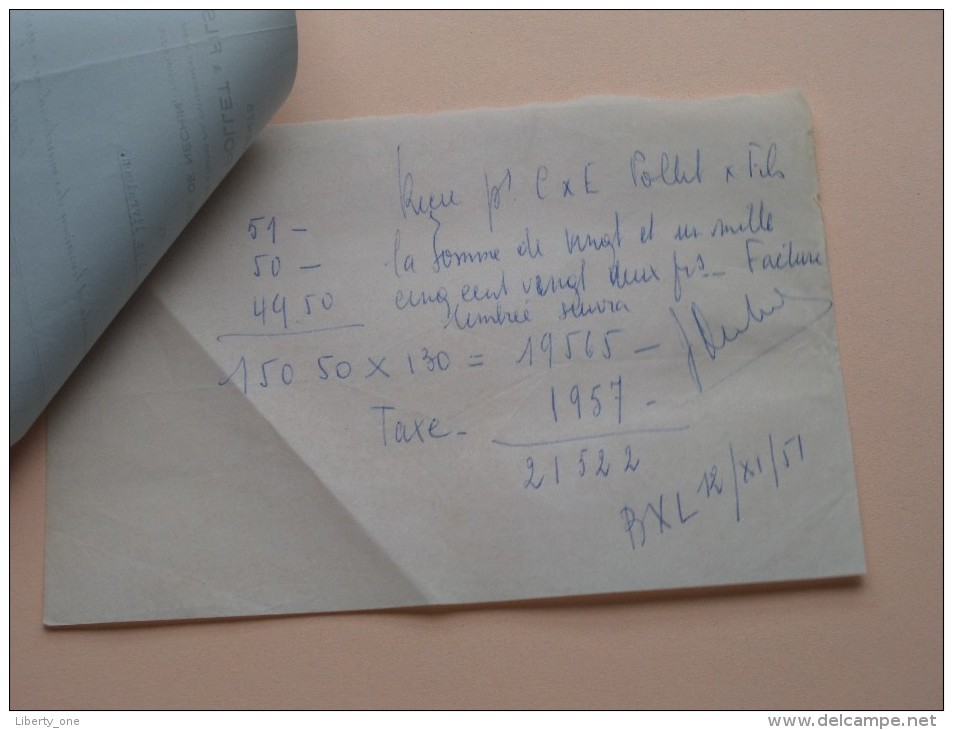 Reçu pr C x E Pollet x Fils
51 -
la somme de vingt et un mille
50 -
cinq cent vingt deux frs - Facture
49.50
timbrée suivra
150 50 x 130 = 19565 -
Taxe - 1957 -
21522
BXL 12/XI/51
OLLET & FILS
Liberty_one
www.delcampe.net